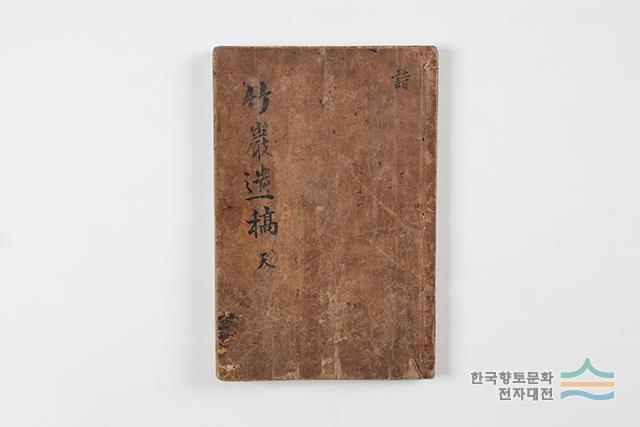 詩
竹巖遺稿 天
한국향토문화
전자대전